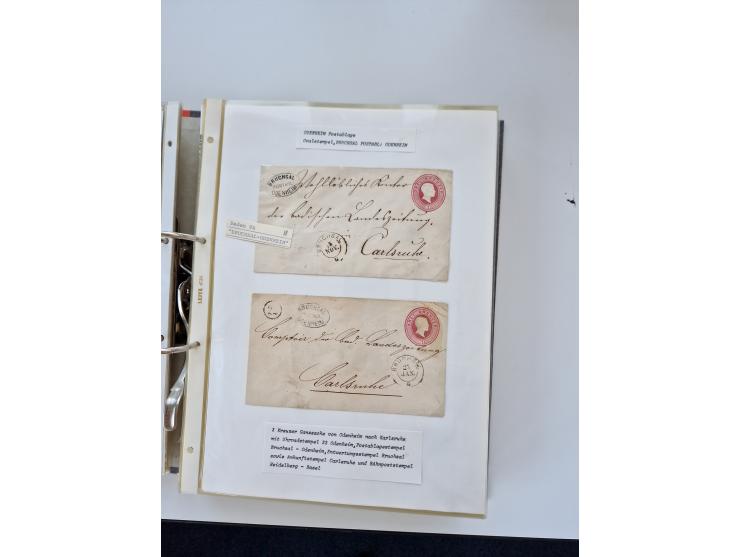 ODENHEIM Postablage
Ovalstempel, BRUCHSAL POSTABL: ODENHEIM
BRUCHSAL
POSTABL.
ODENHEIM
Wohllöbliches Kontor
der badischen Landeszeitung.
Carlsruhe.
BRUCHSAL
NOV.
Baden GA
"BRUCHSAL-ODENHEIM"
LEITZ
BRUCHSAL
ODENHEIM
Comptoir der bad. Landeszeitung
Carlsruhe
BRUCHSAL
JAN.
3 Kreuzer Ganzsache von Odenheim nach Karlsruhe
mit Uhrradstempel 23 Odenheim, Postablagestempel
Bruchsal - Odenheim, Entwertungsstempel Bruchsal
sowie Ankunftstempel Carlsruhe und Bahnpoststempel
Heidelberg - Basel